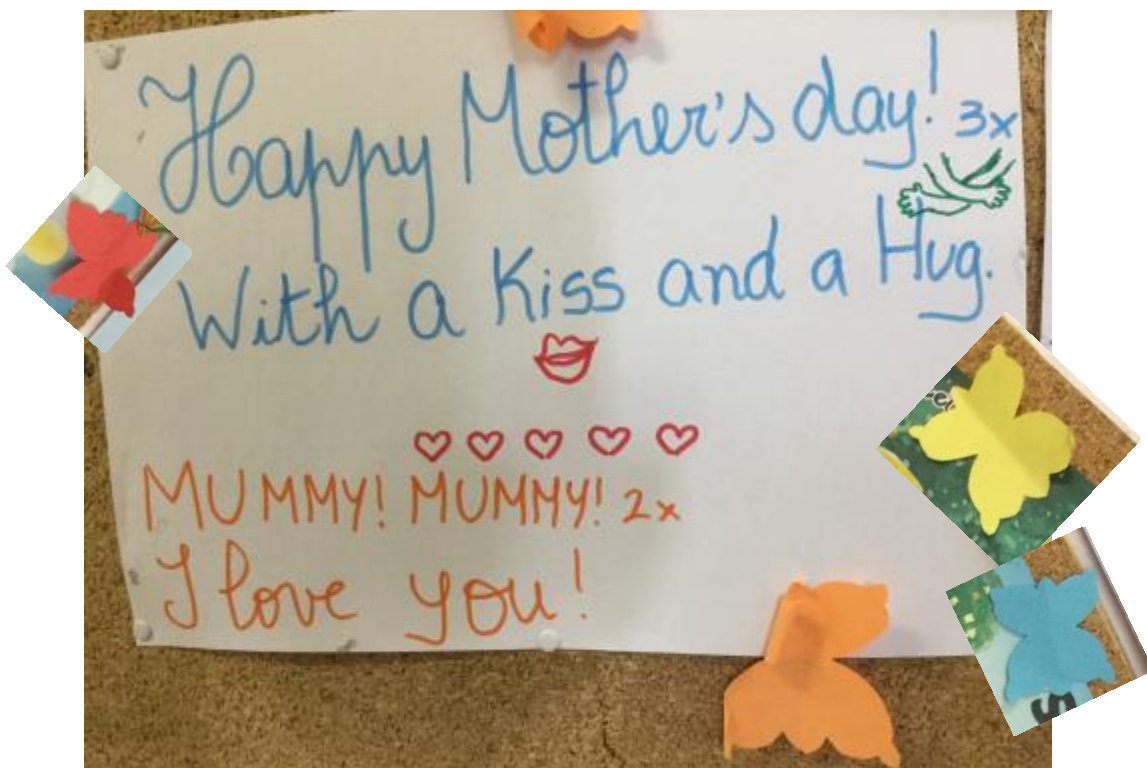 Happy Mother's day! 3x
With a Kiss and a Hug.
MUMMY! MUMMY! 2x
I love you!